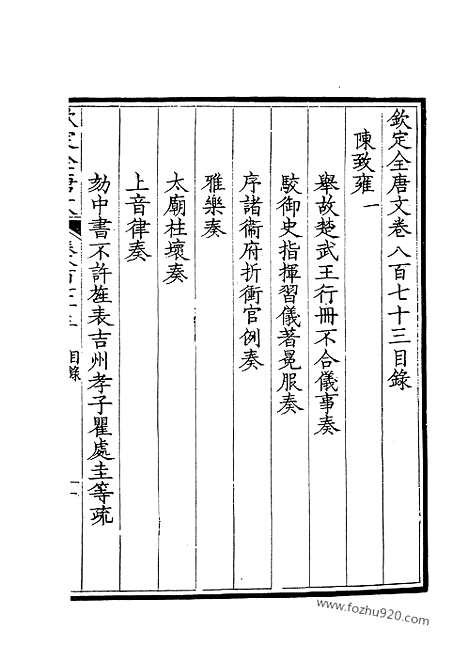 欽定全唐文卷八百七十三目錄
陳致雍一
舉故楚武王行冊不合儀事奏
駮御史指揮習儀著冕服奏
序諸衞府折衝官例奏
雅樂奏
太廟柱壞奏
上音律奏
劾中書不許旌表吉州孝子瞿處圭等疏
目錄
www.fozhu920.com